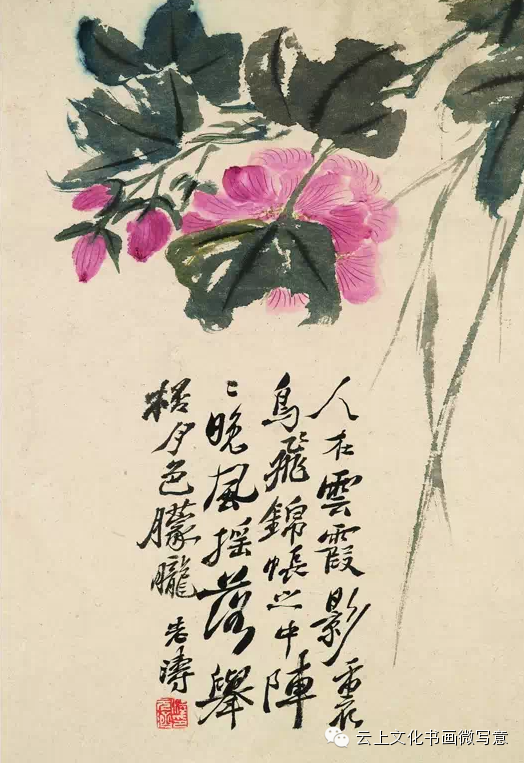 人在雲霞影裏
鳥飛錦帳之中陣
〻晚風摇落舉
夕色朦朧 老濤
云上文化书画微写意